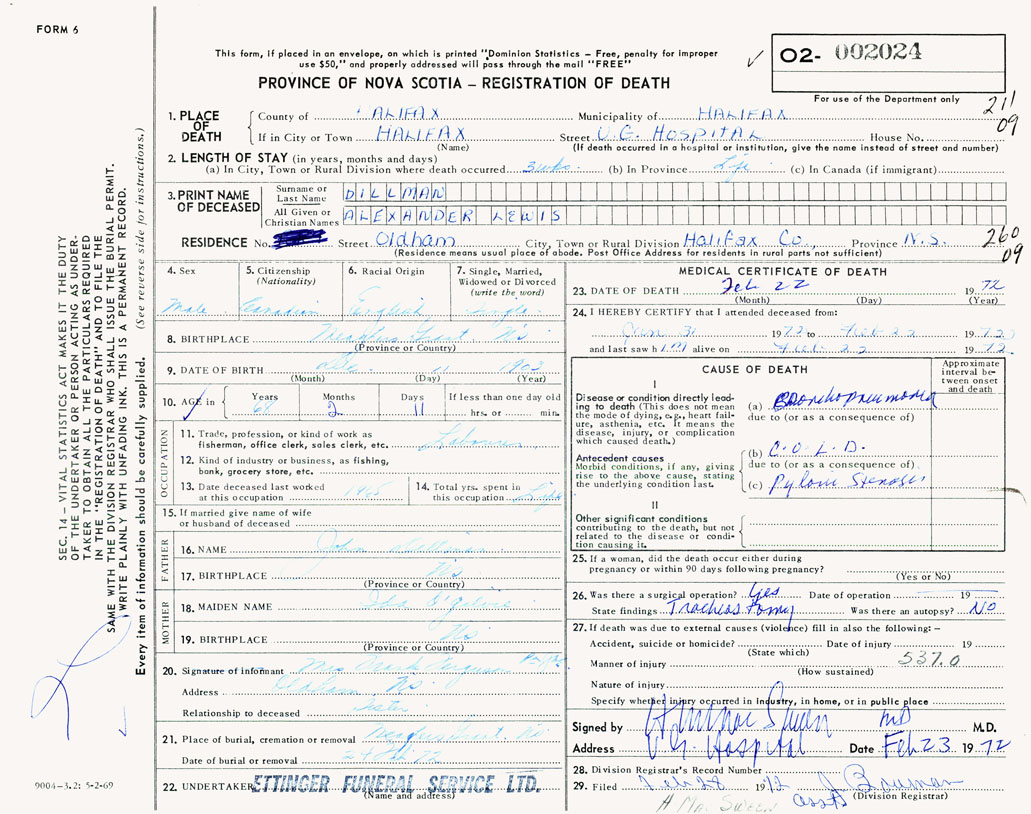 FORM 6
This form, if placed in an envelope, on which is printed "Dominion Statistics – Free, penalty for improper
use $50," and properly addressed will pass through the mail "FREE"
PROVINCE OF NOVA SCOTIA – REGISTRATION OF DEATH
✓ O2- 002024
For use of the Department only
211
09
1. PLACE OF DEATH
County of HALIFAX Municipality of HALIFAX
If in City or Town HALIFAX Street V.G. HOSPITAL House No.
(Name) (If death occurred in a hospital or institution, give the name instead of street and number)
2. LENGTH OF STAY (in years, months and days)
(a) In City, Town or Rural Division where death occurred 3 wks. (b) In Province Life (c) In Canada (if immigrant)
3. PRINT NAME OF DECEASED
Surname or Last Name DILLMAN
All Given or Christian Names ALEXANDER LEWIS
RESIDENCE No. Street Oldham City, Town or Rural Division Halifax Co., Province N.S.
260
09
(Residence means usual place of abode. Post Office Address for residents in rural parts not sufficient)
4. Sex
Male
5. Citizenship
(Nationality)
Canadian
6. Racial Origin
English
7. Single, Married,
Widowed or Divorced
(write the word)
Single
8. BIRTHPLACE Meaghers Grant NS
(Province or Country)
9. DATE OF BIRTH Dec 11 1902
(Month) (Day) (Year)
10. AGE in
Years Months Days If less than one day old
69 2 11 hrs. or min.
OCCUPATION
11. Trade, profession, or kind of work as
fisherman, office clerk, sales clerk, etc. Labourer
12. Kind of industry or business, as fishing,
bank, grocery store, etc.
13. Date deceased last worked
at this occupation 1965
14. Total yrs. spent in
this occupation Life
15. If married give name of wife
or husband of deceased
FATHER
16. NAME John Dillman
17. BIRTHPLACE NS
(Province or Country)
MOTHER
18. MAIDEN NAME Ida Ogilvie
19. BIRTHPLACE NS
(Province or Country)
20. Signature of informant Mrs Ferguson
Address Oldham NS
Relationship to deceased Sister
21. Place of burial, cremation or removal Meaghers Grant NS
Date of burial or removal 24 Feb 72
22. UNDERTAKER ETTINGER FUNERAL SERVICE LTD.
(Name and address)
MEDICAL CERTIFICATE OF DEATH
23. DATE OF DEATH Feb 22 1972
(Month) (Day) (Year)
24. I HEREBY CERTIFY that I attended deceased from:
Jan 31 1972 to Feb 22 1972
and last saw him alive on Feb 22 1972
CAUSE OF DEATH
Approximate
interval be-
tween onset
and death
I
Disease or condition directly lead-
ing to death (This does not mean
the mode of dying, e.g., heart fail-
ure, asthenia, etc. It means the
disease, injury, or complication
which caused death.)
(a) Bronchopneumonia
due to (or as a consequence of)
Antecedent causes
Morbid conditions, if any, giving
rise to the above cause, stating
the underlying condition last.
(b) C.O.L.D.
due to (or as a consequence of)
(c) Pyloric Stenosis
II
Other significant conditions
contributing to the death, but not
related to the disease or condi-
tion causing it.
25. If a woman, did the death occur either during
pregnancy or within 90 days following pregnancy?
(Yes or No)
26. Was there a surgical operation? Yes Date of operation 19
State findings Trachiostomy Was there an autopsy? NO
27. If death was due to external causes (violence) fill in also the following: –
Accident, suicide or homicide? Date of injury 19
(State which)
Manner of injury 537.0
(How sustained)
Nature of injury
Specify whether injury occurred in industry, in home, or in public place
Signed by MD M.D.
Address V.G. Hospital Date Feb 23 1972
28. Division Registrar's Record Number
29. Filed Feb 28 1972 J. Bauman
(Division Registrar)
A Mac Sween asst
SEC. 14 – VITAL STATISTICS ACT MAKES IT THE DUTY
OF THE UNDERTAKER OR PERSON ACTING AS UNDER-
TAKER TO OBTAIN ALL THE PARTICULARS REQUIRED
IN THE "REGISTRATION OF DEATH" AND TO FILE THE
SAME WITH THE DIVISION REGISTRAR WHO SHALL ISSUE THE BURIAL PERMIT.
WRITE PLAINLY WITH UNFADING INK. THIS IS A PERMANENT RECORD.
Every item of information should be carefully supplied. (See reverse side for instructions.)
9004-3.2: 5-2-69